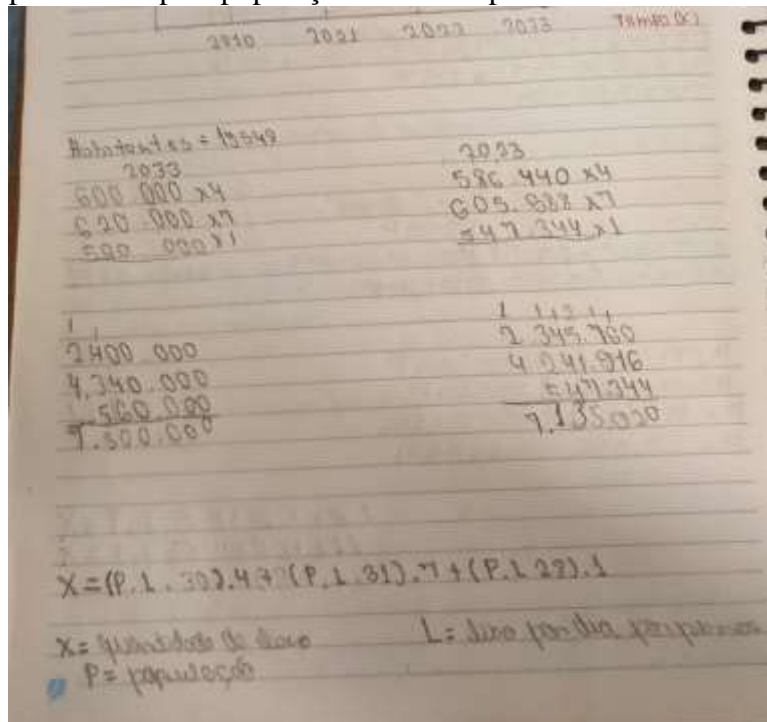 2010 2021 2022 2033 Tempo (x)
Habitantes = 19548
2033
600 000 x4
620 000 x7
560 000 x1
2023
586.440 x4
605.988 x7
547.344 x1
1 1
2400 000
4.340.000
560.000
7.300.000
1 1,2 1,
2.345.760
4 241.916
547.344
7.135.020
X=(P.L.30).4+(P.L.31).7+(P.L 28).1
X= quantidade de lixo L= lixo por dia por pessoa
P= população